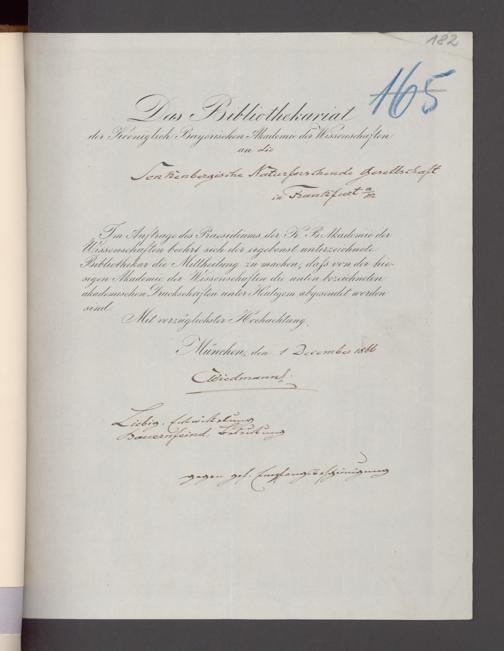 182
165
Das Bibliothekariat
der Königlich Bayerischen Akademie der Wissenschaften
an die
Senkenbergische Naturforschende Gesellschaft
in Frankfurt a/M
Im Auftrage des Praesidiums der K. B. Akademie der
Wissenschaften beehrt sich der ergebenst unterzeichnete
Bibliothekar die Mittheilung zu machen, daß von der hie-
sigen Akademie der Wissenschaften die unten bezeichneten
akademischen Druckschriften unter Heutigem abgesendet worden
seind.
Mit vorzüglichster Hochachtung.
München, den 1 December 1866
Wiedmann
Liebig. Entwickelung
Bauernfeind. Bedeutung
gegen gef. Empfangsbescheinigung